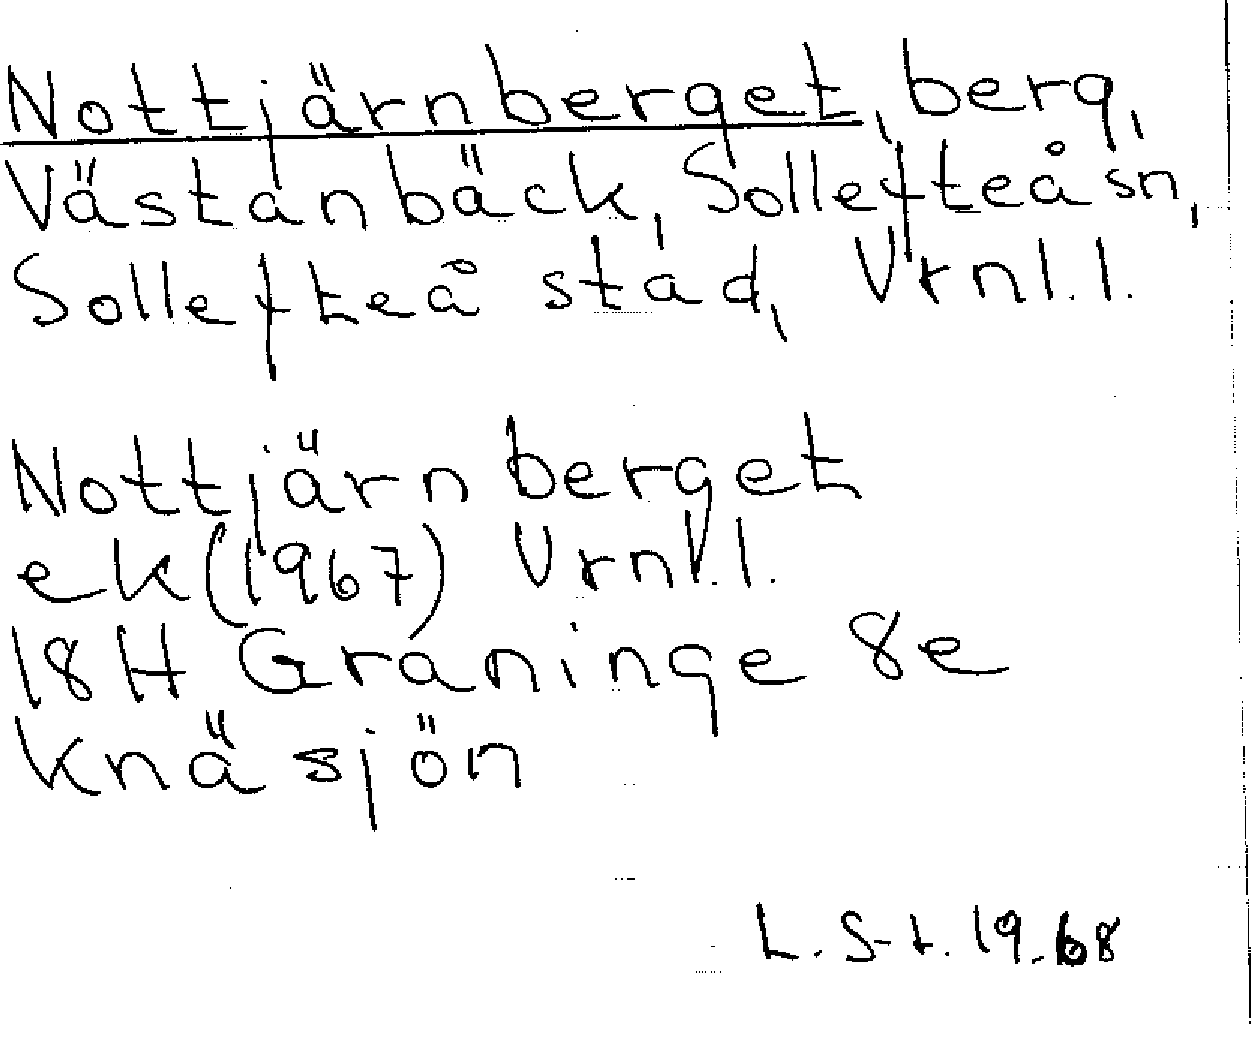 Nottjärnberget, berg,
Västanbäck, Sollefteå sn,
Sollefteå stad, Vrnl.l.
Nottjärnberget
ek(1967) Vrnl.l.
18H Graninge 8e
Knäsjön
L. S-t. 19.68